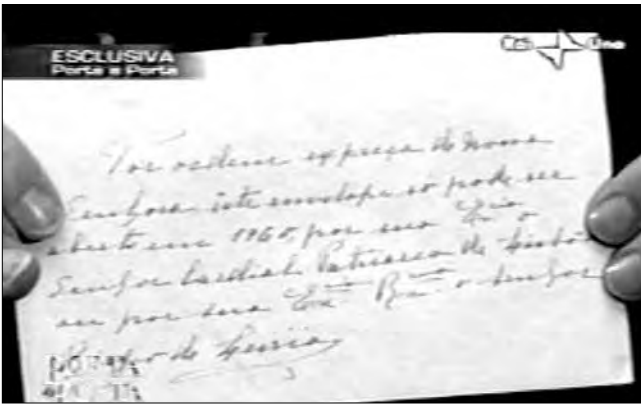 ESCLUSIVA
Porta a Porta
Rai Uno
Por ordem expreça de Nossa
Senhora este envelope só pode ser
aberto em 1960, por sua o
Senhor Cardial Patriarca de Lisbôa
ou por sua Ex.cia R.ma o Senhor
Bispo de Leiria